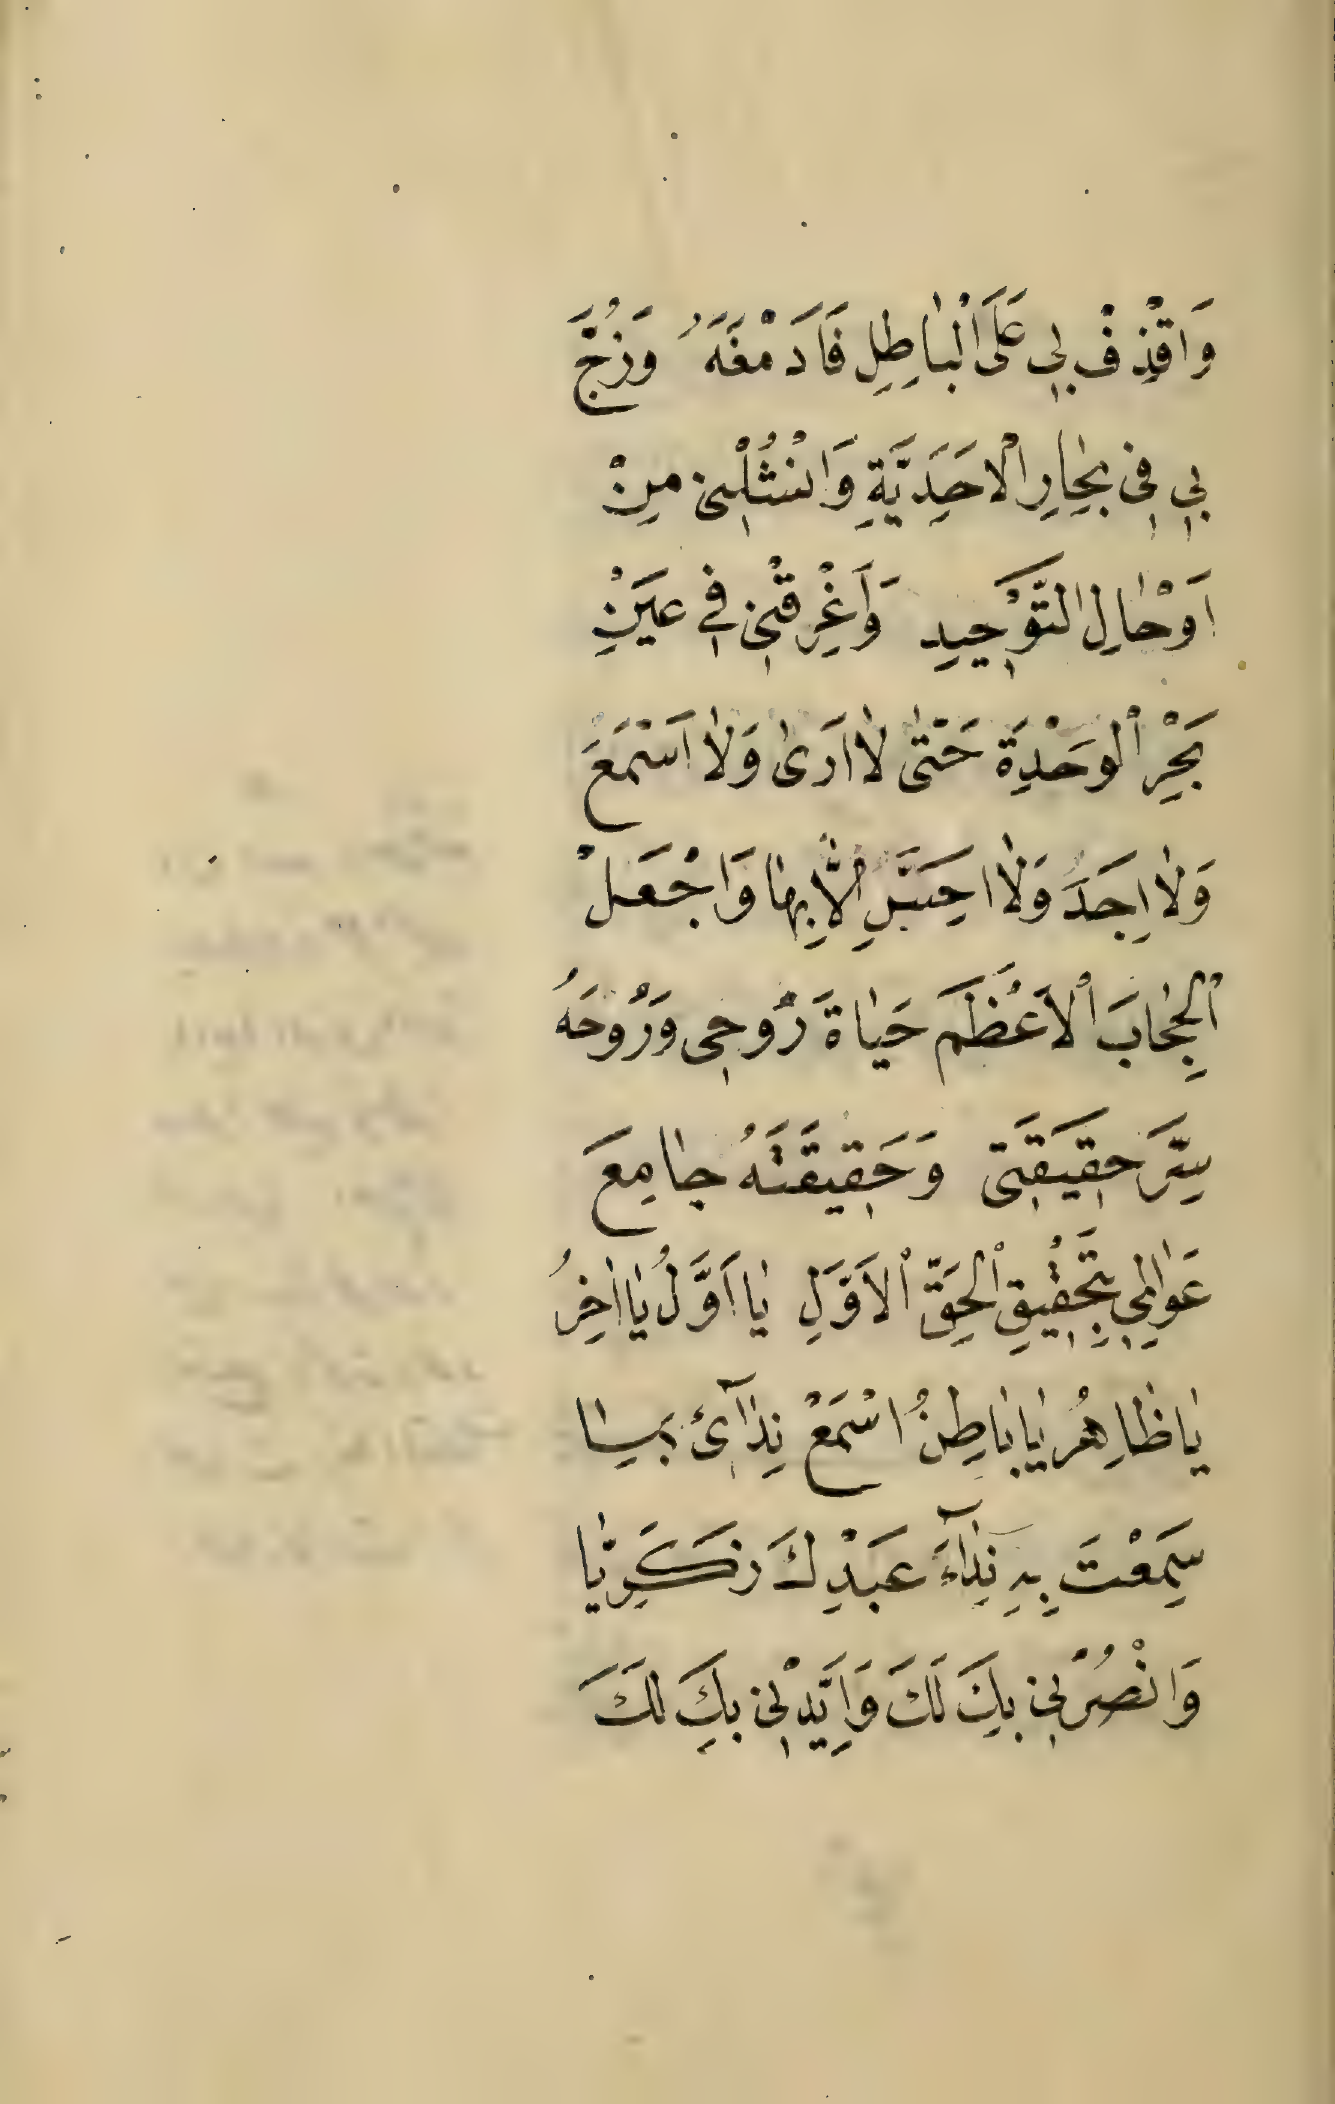 وَاقْذِفْ بِي عَلَى الْبَاطِلِ فَاَدْمَغَهُ وَزُجَّ
بِي فِي بِحَارِ الْاَحَدِيَّةِ وَانْشُلْنِي مِنْ
اَوْحَالِ التَّوْحِيدِ وَاَغْرِقْنِي فِي عَيْنِ
بَحْرِ الْوَحْدَةِ حَتّٰى لَا اَرٰى وَلَا اَسْمَعَ
وَلَا اَجِدَ وَلَا اُحِسَّ اِلَّا بِهَا وَاجْعَلْ
الْحِجَابَ الْاَعْظَمَ حَيَاةَ رُوحِي وَرُوحَهُ
سِرَّ حَقِيقَتِي وَحَقِيقَتَهُ جَامِعَ
عَوَالِمِي بِتَحْقِيقِ الْحَقِّ الْاَوَّلِ يَا اَوَّلُ يَا اٰخِرُ
يَا ظَاهِرُ يَا بَاطِنُ اسْمَعْ نِدَآئِي بِمَا
سَمِعْتَ بِهِ نِدَآءَ عَبْدِكَ زَكَرِيَّا
وَانْصُرْنِي بِكَ لَكَ وَاَيِّدْنِي بِكَ لَكَ